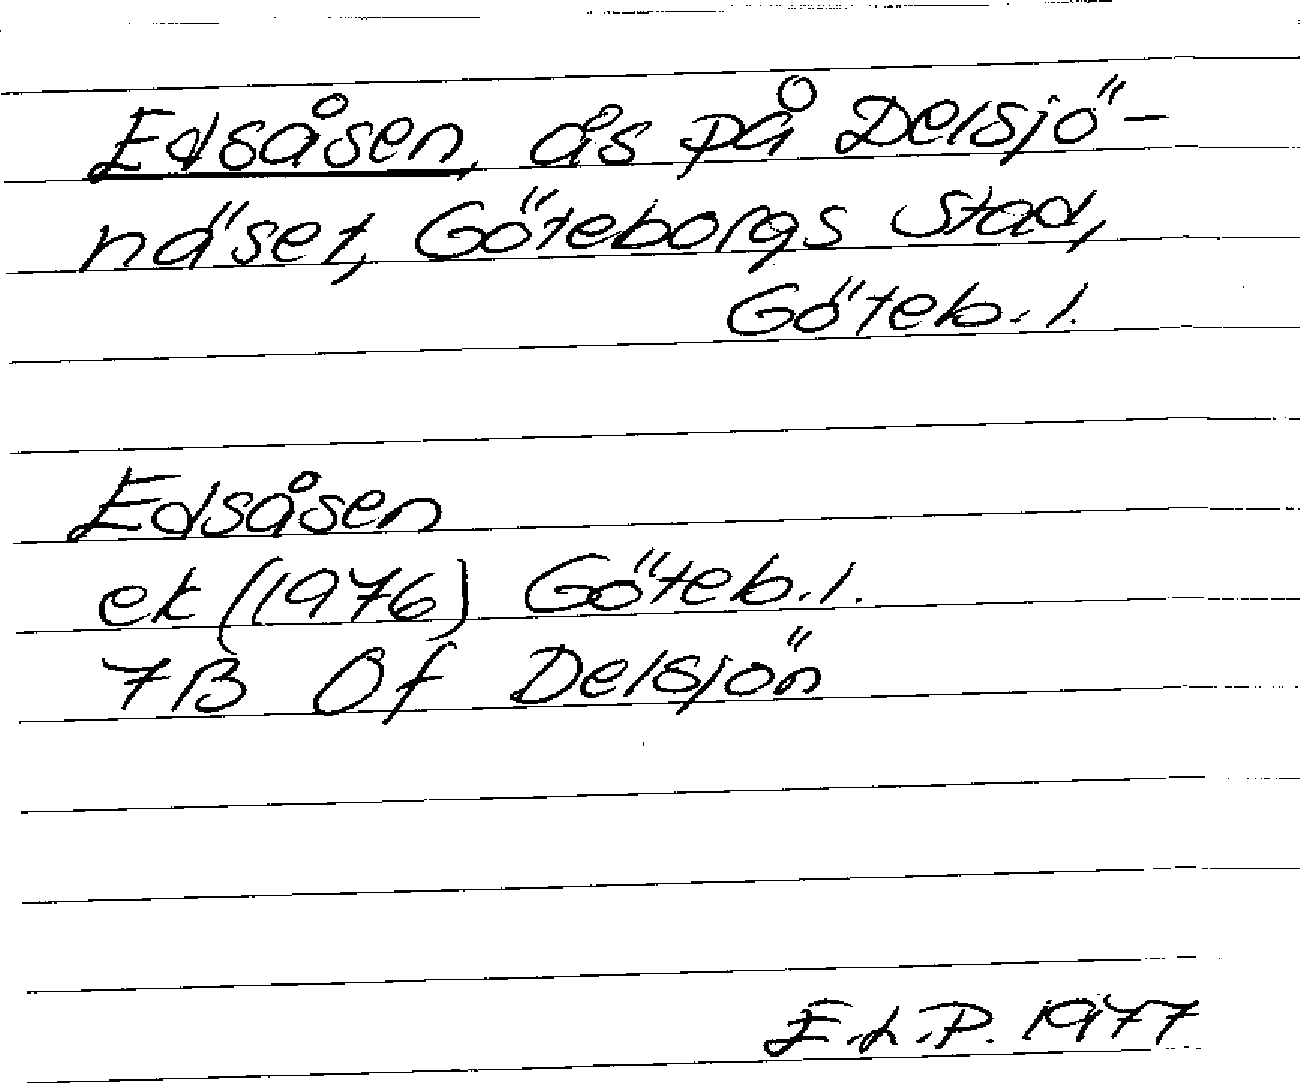 Edsåsen, ås på Delsjö-
näset, Göteborgs stad,
Göteb. l.
Edsåsen
ek (1976) Göteb. l.
7B 0f Delsjön
E.L.P. 1977